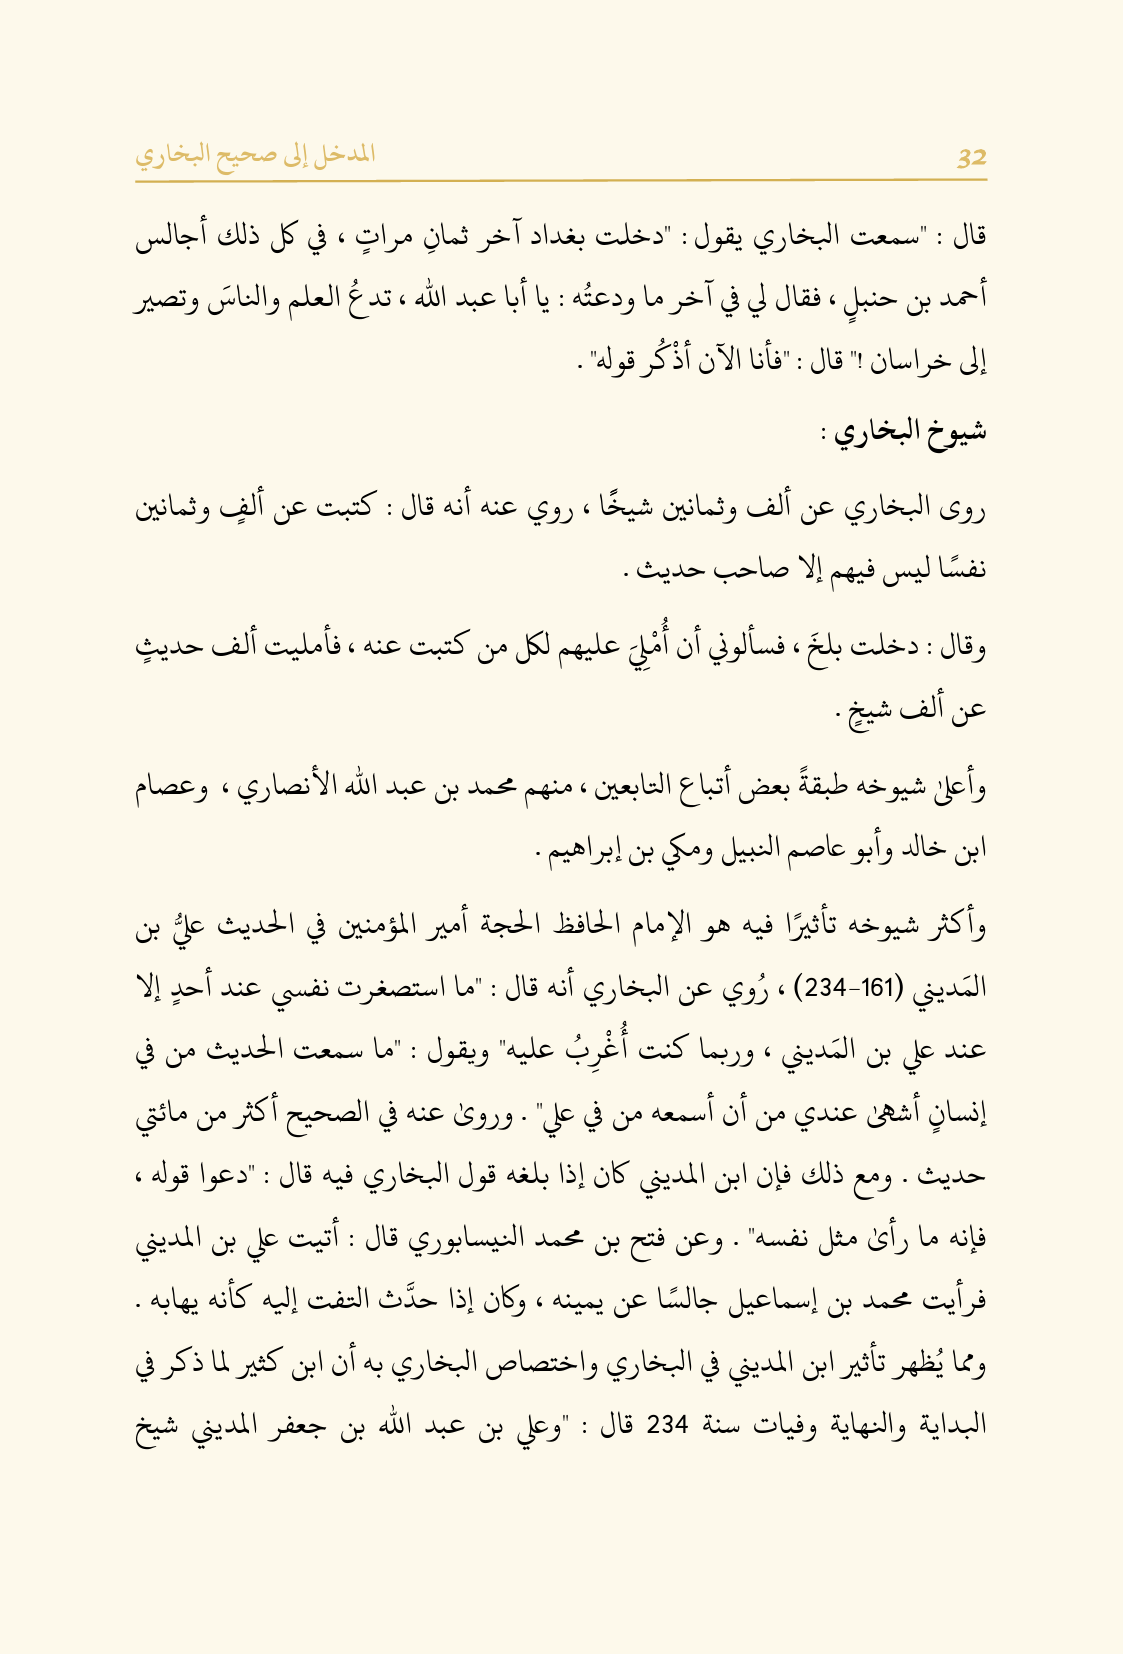 32 المدخل إلى صحيح البخاري
قال : "سمعت البخاري يقول : "دخلت بغداد آخر ثمانِ مراتٍ ، في كل ذلك أجالس
أحمد بن حنبلٍ ، فقال لي في آخر ما ودعتُه : يا أبا عبد الله ، تدعُ العلم والناسَ وتصير
إلى خراسان !" قال : "فأنا الآن أذْكُر قوله" .
شيوخ البخاري :
روى البخاري عن ألف وثمانين شيخًا ، روي عنه أنه قال : كتبت عن ألفٍ وثمانين
نفسًا ليس فيهم إلا صاحب حديث .
وقال : دخلت بلخَ ، فسألوني أن أُمْلِيَ عليهم لكل من كتبت عنه ، فأمليت ألف حديثٍ
عن ألف شيخٍ .
وأعلىٰ شيوخه طبقةً بعض أتباع التابعين ، منهم محمد بن عبد الله الأنصاري ، وعصام
ابن خالد وأبو عاصم النبيل ومكي بن إبراهيم .
وأكثر شيوخه تأثيرًا فيه هو الإمام الحافظ الحجة أمير المؤمنين في الحديث عليُّ بن
المَديني (161-234) ، رُوي عن البخاري أنه قال : "ما استصغرت نفسي عند أحدٍ إلا
عند علي بن المَديني ، وربما كنت أُغْرِبُ عليه" ويقول : "ما سمعت الحديث من في
إنسانٍ أشهىٰ عندي من أن أسمعه من في علي" . وروىٰ عنه في الصحيح أكثر من مائتي
حديث . ومع ذلك فإن ابن المديني كان إذا بلغه قول البخاري فيه قال : "دعوا قوله ،
فإنه ما رأىٰ مثل نفسه" . وعن فتح بن محمد النيسابوري قال : أتيت علي بن المديني
فرأيت محمد بن إسماعيل جالسًا عن يمينه ، وكان إذا حدَّث التفت إليه كأنه يهابه .
ومما يُظهر تأثير ابن المديني في البخاري واختصاص البخاري به أن ابن كثير لما ذكر في
البداية والنهاية وفيات سنة 234 قال : "وعلي بن عبد الله بن جعفر المديني شيخ